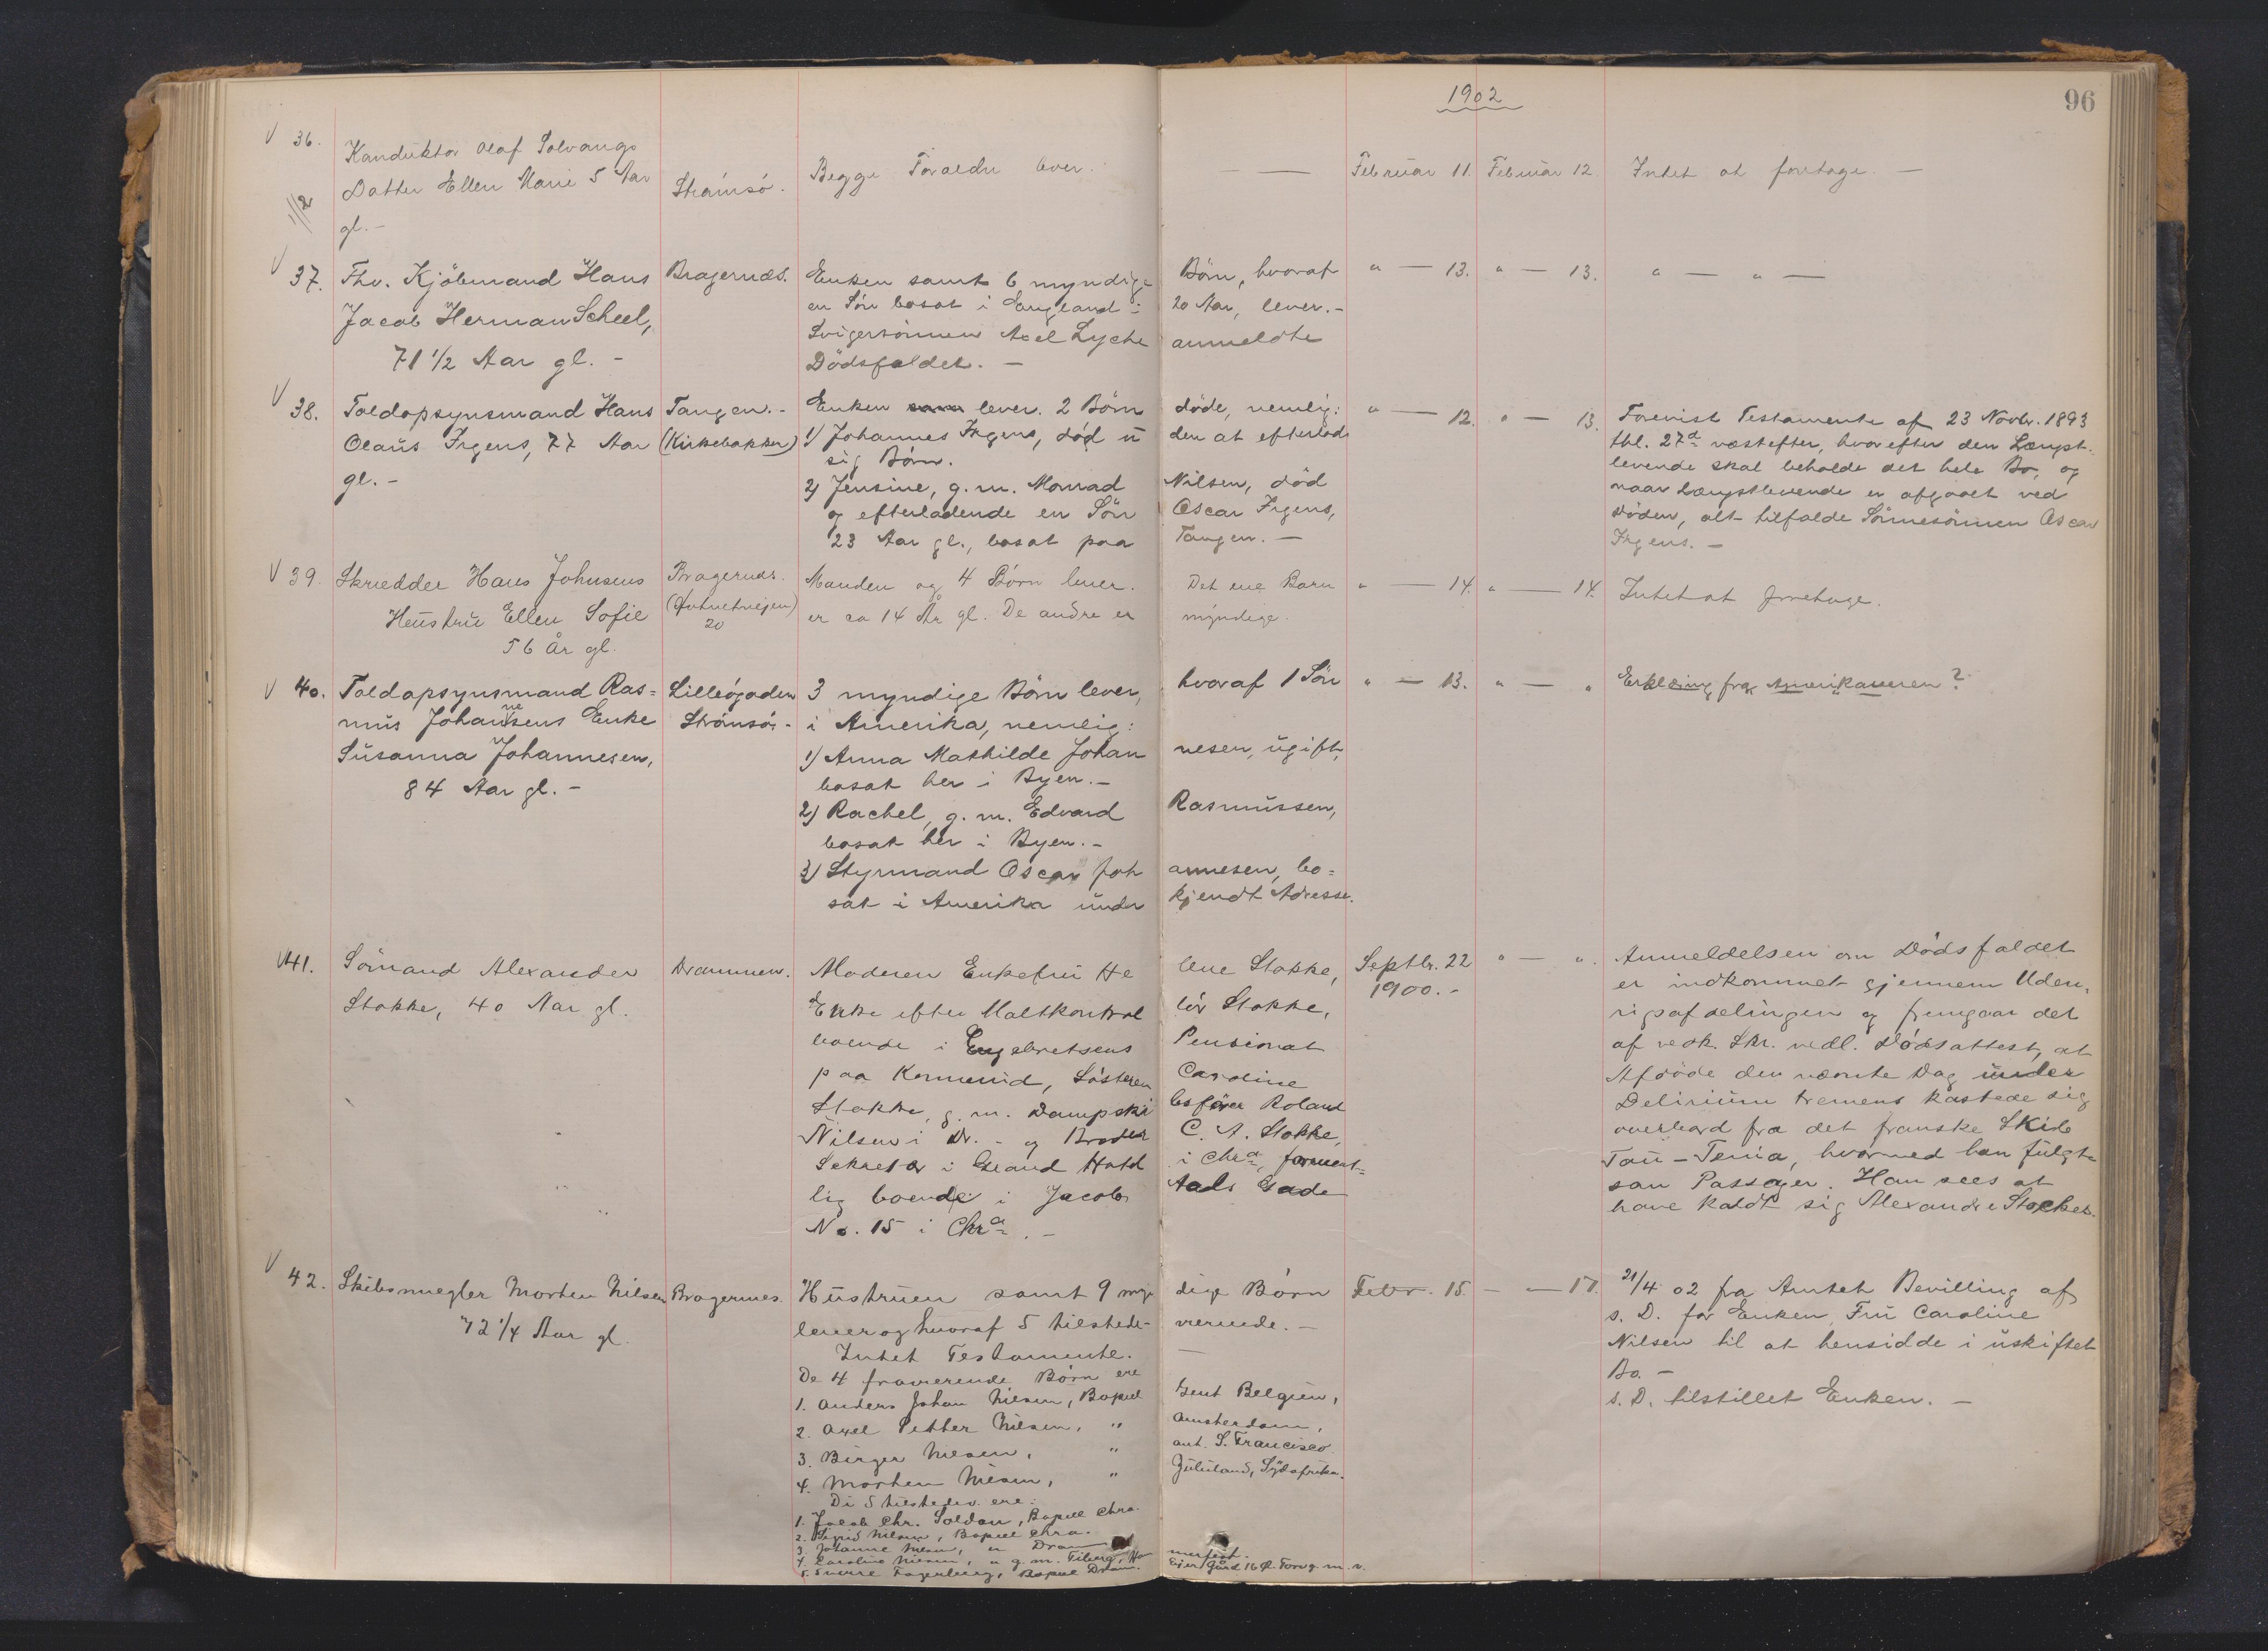 1902
96
V 36. Konduktør Olaf Solvangs
Datter Ellen Marie 5 Aar
gl. -
11/2
Strømsø.
Begge Forældre lever.
Februar 11. Februar 12. Intet at foretage. -
V 37. Fhv. Kjøbmand Hans
Jacob Herman Scheel,
71 1/2 Aar gl. -
Bragernæs.
Enken samt 6 myndige Børn, hvoraf
en Søn bosat i England i 20 Aar, lever. -
Svigersønnen Axel Lyche anmeldte
Dødsfaldet. -
" - 13. " - 13. " - " -
V 38. Toldopsynsmand Hans
Olaus Irgens, 77 Aar
gl. -
Tangen. -
(Kirkebakken)
Enken lever. 2 Børn døde, nemlig:
1) Johannes Irgens, død uden at efterlade
sig Børn.
2) Jensine, g. m. Monrad Nilsen, død
og efterladende en Søn Oscar Irgens,
23 Aar gl., bosat paa Tangen. -
" - 12. " - 13.
Forevist Testamente af 23 Novbr. 1893
tbl. 27d næstefter, hvorefter den Længst-
levende skal beholde det hele Bo, og
naar Længstlevende er afgaaet ved
Døden, alt tilfalde Sønnesønnen Oscar
Irgens. -
V 39. Skrædder Hans Johnsens
Hustru Ellen Sofie
56 År gl.
Bragernæs.
20
Manden og 4 Børn lever. Det ene Barn
er ca 14 År gl. De andre er myndige.
" - 14. " - 14. Intet at foretage.
V 40. Toldopsynsmand Ras=
mus Johannesens Enke
Susanna Johannesen,
84 Aar gl. -
Lilleøgaden
Strømsø. -
3 myndige Børn lever, hvoraf 1 Søn
i Amerika, nemlig:
1) Anna Mathilde Johannesen, ugift,
bosat her i Byen. -
2) Rachel, g. m. Edvard Rasmussen,
bosat her i Byen. -
3) Styrmand Oscar Johannesen, bo=
sat i Amerika under kjendt Adresse.
" - 13. " - "
Erklæring fra Amerikaneren?
V 41. Sømand Alexander
Stokke, 40 Aar gl.
Drammen.
Moderen Enkefru Helene Stokke,
Enke efter Maltkontrollør Stokke,
boende i Engebretsens Pensionat
paa Konnerud, Søsteren Caroline
Stokke, g. m. Dampskibsfører Roland
Nilsen i Dr. - og Broder C. A. Stokke,
Sekretær i Grand Hotel i Chra, forment=
lig boende i Jacob Aals Gade
No. 15 i Chra. -
Septbr. 22
1900. -
" - ".
Anmeldelsen om Dødsfaldet
er indkommet gjennem Uden=
rigsafdelingen og fremgaar det
af vedk. Skr. vedl. Dødsattest, at
Afdøde den nævnte Dag under
Delirium tremens kastede sig
overbord fra det franske Skib
Tau-Tenia, hvormed han fulgte
som Passager. Han sees at
have kaldt sig Alexandre Stockes.
V 42. Skibsmægler Morten Nilsen
72 1/4 Aar gl.
Bragernes.
Hustruen samt 9 myndige Børn
lever og hvoraf 5 tilstede- værende. -
Intet Testamente. -
De 4 fraværende Børn ere
1. Anders Johan Nilsen, Bopæl Gent Belgien,
2. Axel Petter Nilsen, " Amsterdam,
3. Birger Nilsen, " ant. S. Francisco
4. Morten Nilsen, " Zululand, Sydafrika.
De 5 tilstedev. ere:
1. Jacob Chr. Soldan, Bopæl Chra.
2. Sigrid Nilsen, Bopæl Chra.
3. Johanne Nilsen, Dram
4. Caroline Nilsen, g. m. Hammerfest.
5. Sverre Fagerberg, Bopæl Dram. Eier Gård 16 Torv g. m. v.
Febr. 15. - - 17.
21/4 02 fra Amtet Bevilling af
s. D. for Enken, Fru Caroline
Nilsen til at hensidde i uskiftet
Bo. -
s. D. tilstillet Enken. -